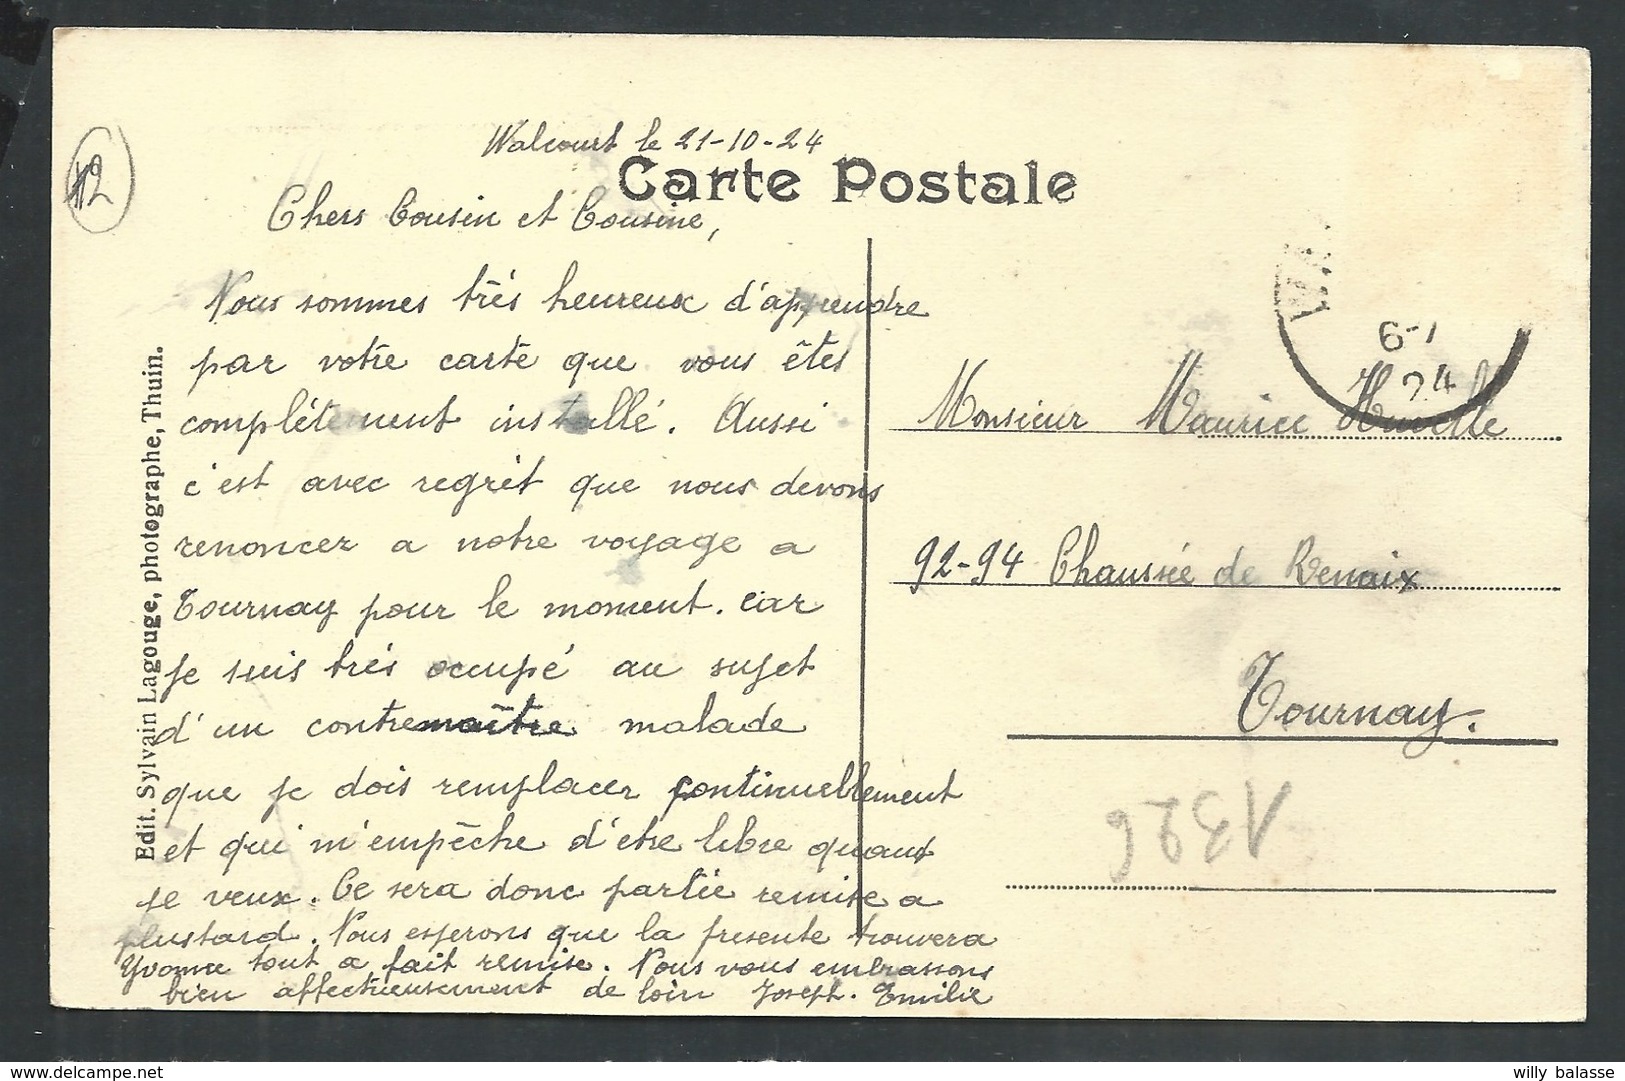 Walcourt le 21-10-24
Carte Postale
Chers Cousin et Cousine,
Nous sommes très heureux d'apprendre
par votre carte que vous êtes
complétement installé. Aussi
c'est avec regrèt que nous devons
renoncer a notre voyage a
Tournay pour le moment. Car
je suis très occupé au sujet
d'un contremaître malade
que je dois remplacer continuellement
et qui m'empêche d'être libre quant
je veux. Ce sera donc partie remise a
plustard. Nous esperons que la presente trouvera
Yvonne tout a fait remise. Nous vous embrassons
bien affectueusement de loin Joseph. Emilie
Edit. Sylvain Lagouge, photographe, Thuin.
12
6-1
24
Monsieur Maurice
92-94 Chaussée de Renaix
Tournay.
1326
willy balasse